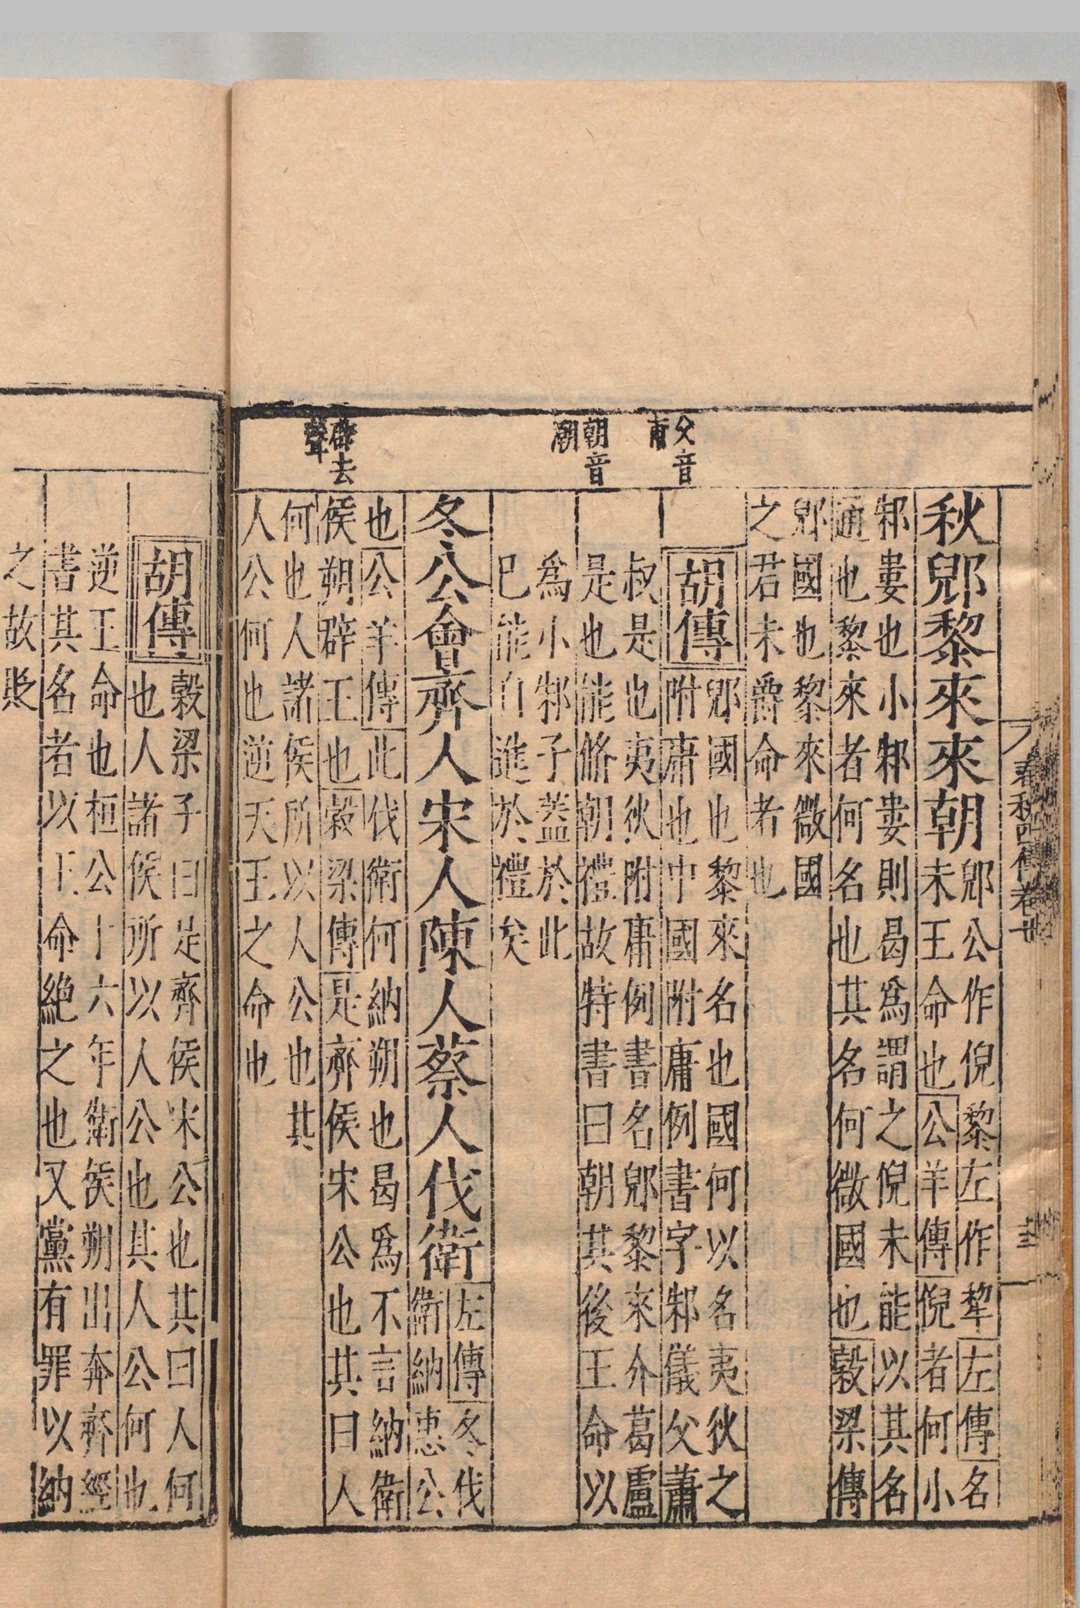 父音
甫
朝音
潮
辟去
聲
秋郳黎來來朝
郳公作倪黎左作犂左傳名
未王命也公羊傳倪者何小
邾婁也小邾婁則曷爲謂之倪未能以其名
通也黎來者何名也其名何微國也穀梁傳
郳國也黎來微國
之君未爵命者也
胡傳
郳國也黎來名也國何以名夷狄之
附庸也中國附庸例書字邾儀父蕭
叔是也夷狄附庸例書名郳黎來介葛盧
是也能脩朝禮故特書曰朝其後王命以
爲小邾子蓋於此
已能自進於禮矣
冬公會齊人宋人陳人蔡人伐衛
左傳冬伐
衛納惠公
也公羊傳此伐衛何納朔也曷爲不言納衛
侯朔辟王也穀梁傳是齊侯宋公也其曰人
何也人諸侯所以人公也其
人公何也逆天王之命也
胡傳
穀梁子曰是齊侯宋公也其曰人何
也人諸侯所以人公也其人公何也
逆王命也桓公十六年衛侯朔出奔齊經
書其名者以王命絶之也又黨有罪以納
之故貶